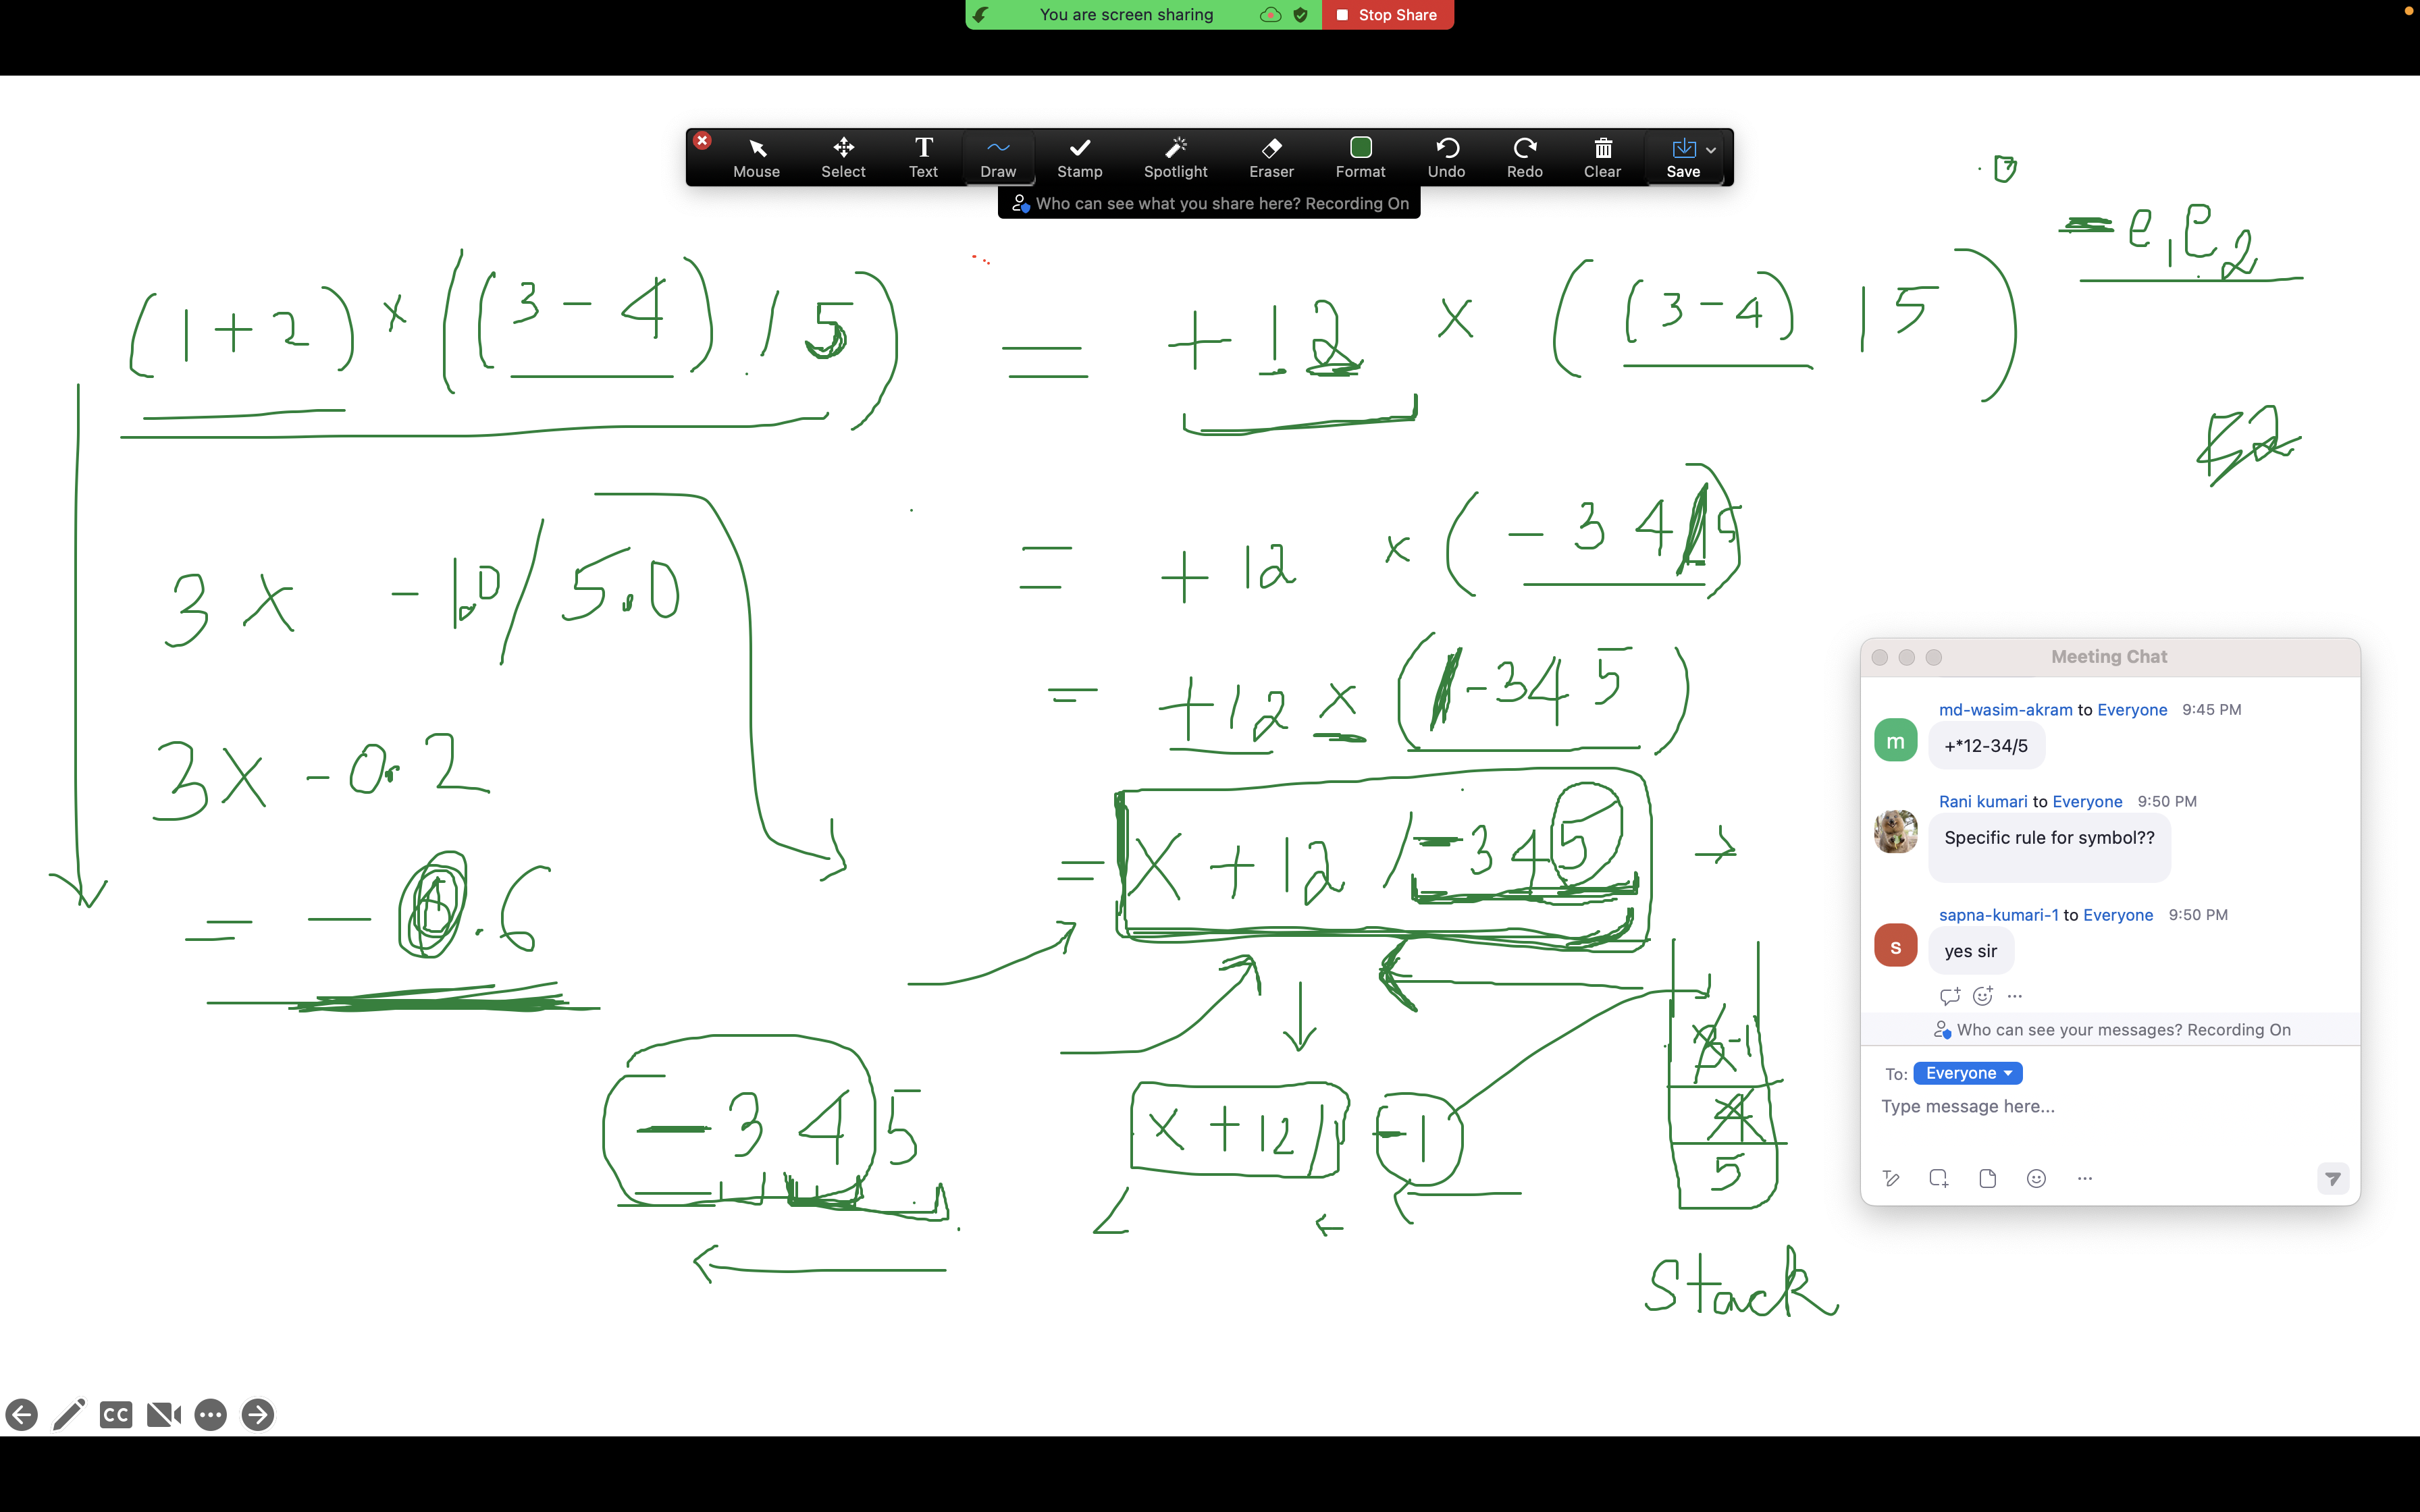 You are screen sharing
Stop Share
Mouse Select Text Draw Stamp Spotlight Eraser Format Undo Redo Clear Save
Who can see what you share here? Recording On
= e1 e2
(1+2) × ((3-4)/5) = +12 × ((3-4)/5)
= +12 × (-34/5)
3 × -1.0/5.0
= +12 × (/-34 5)
3 × -0.2
= × + 12 / - 3 4 5 →
= - 0.6
- 3 4 5
× + 12 / -1
3 -1
4
5
Stack
Meeting Chat
md-wasim-akram to Everyone 9:45 PM
m
+*12-34/5
Rani kumari to Everyone 9:50 PM
Specific rule for symbol??
sapna-kumari-1 to Everyone 9:50 PM
s
yes sir
Who can see your messages? Recording On
To: Everyone
Type message here...
CC